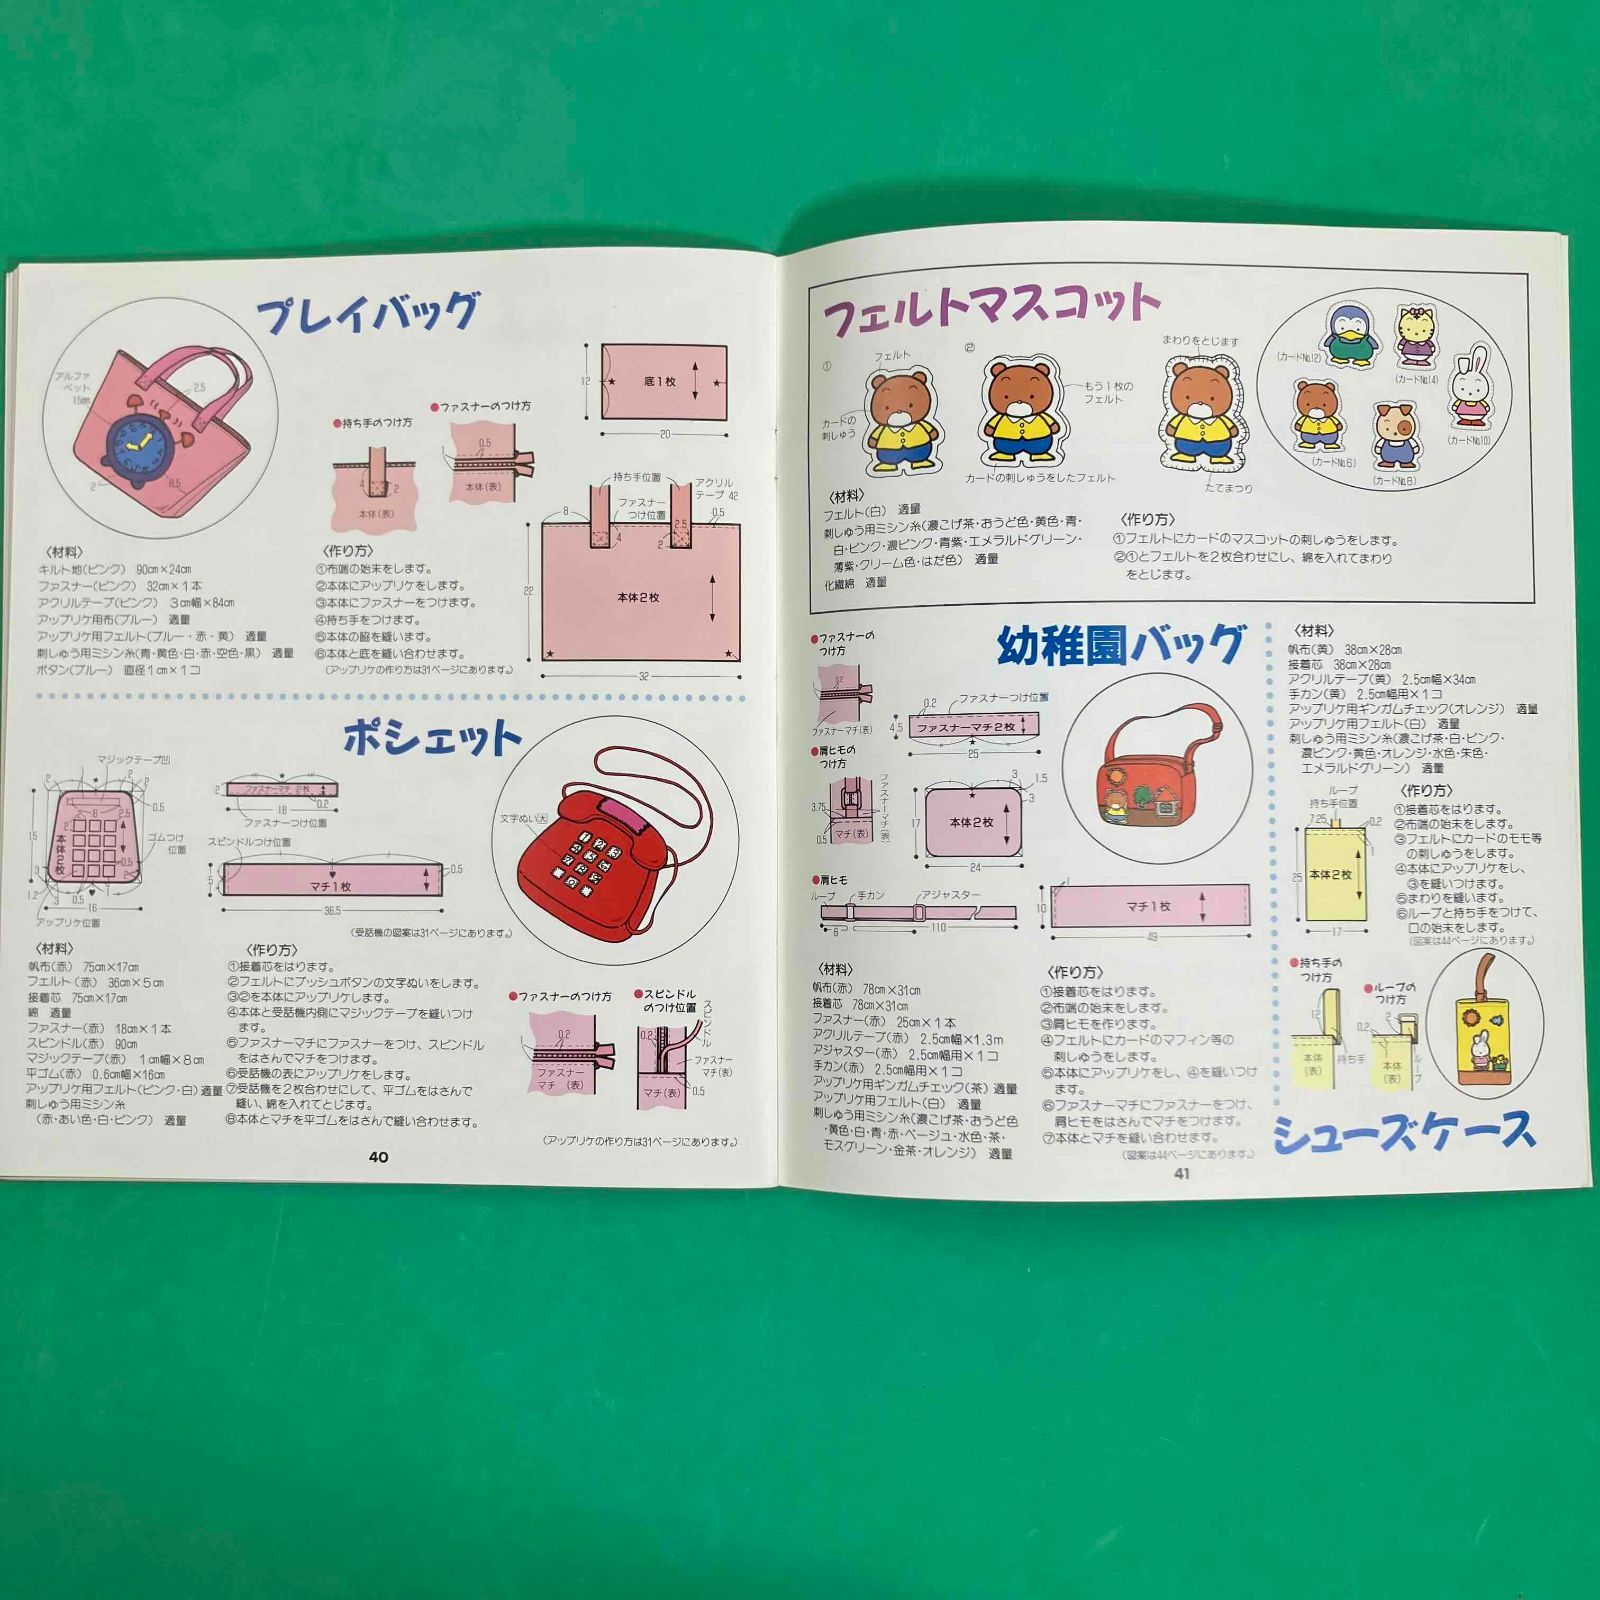 プレイバッグ
アルファ
ベット
15mm
2.5
2
0.5
●持ち手のつけ方
4
2
本体(表)
●ファスナーのつけ方
0.5
本体(表)
12
底1枚
20
持ち手位置
アクリル
テープ 42
ファスナー
つけ位置
8
0.5
2.5
4
2
22
本体2枚
32
〈材料〉
キルト地(ピンク) 90cm×24cm
ファスナー(ピンク) 32cm×1本
アクリルテープ(ピンク) 3cm幅×84cm
アップリケ用布(ブルー) 適量
アップリケ用フェルト(ブルー・赤・黄) 適量
刺しゅう用ミシン糸(青・黄色・白・赤・空色・黒) 適量
ボタン(ブルー) 直径1cm×1コ
〈作り方〉
①布端の始末をします。
②本体にアップリケをします。
③本体にファスナーをつけます。
④持ち手をつけます。
⑤本体の脇を縫います。
⑥本体と底を縫い合わせます。
(アップリケの作り方は31ページにあります。)
ポシェット
マジックテープ凹
0.5
2.5
ゴムつけ
位置
15
本体2枚
0.5
3
1.2
3
0.5
2
16
アップリケ位置
2
ファスナーマチ 2枚
0.2
18
ファスナーつけ位置
スピンドルつけ位置
マチ1枚
0.5
36.5
(受話機の図案は31ページにあります。)
文字ぬい大
〈材料〉
帆布(赤) 75cm×17cm
フェルト(赤) 36cm×5cm
接着芯 75cm×17cm
綿 適量
ファスナー(赤) 18cm×1本
スピンドル(赤) 90cm
マジックテープ(赤) 1cm幅×8cm
平ゴム(赤) 0.6cm幅×16cm
アップリケ用フェルト(ピンク・白)適量
刺しゅう用ミシン糸
(赤・あい色・白・ピンク) 適量
〈作り方〉
①接着芯をはります。
②フェルトにプッシュボタンの文字ぬいをします。
③②を本体にアップリケします。
④本体と受話機内側にマジックテープを縫いつけ
ます。
⑤ファスナーマチにファスナーをつけ、スピンドル
をはさんでマチをつけます。
⑥受話機の表にアップリケをします。
⑦受話機を2枚合わせにして、平ゴムをはさんで
縫い、綿を入れてとじます。
⑧本体とマチを平ゴムをはさんで縫い合わせます。
●ファスナーのつけ方
0.2
ファスナー
マチ(表)
●スピンドル
のつけ位置
スピンドル
0.2
ファスナー
マチ(表)
マチ(表)
0.5
(アップリケの作り方は31ページにあります。)
40
フェルトマスコット
①
フェルト
カードの
刺しゅう
②
もう1枚の
フェルト
カードの刺しゅうをしたフェルト
まわりをとじます
たてまつり
(カードNo.12)
(カードNo.14)
(カードNo.6)
(カードNo.8)
(カードNo.10)
〈材料〉
フェルト(白) 適量
刺しゅう用ミシン糸(濃こげ茶・おうど色・黄色・青・
白・ピンク・濃ピンク・青紫・エメラルドグリーン・
薄紫・クリーム色・はだ色) 適量
化繊綿 適量
〈作り方〉
①フェルトにカードのマスコットの刺しゅうをします。
②①とフェルトを2枚合わせにし、綿を入れてまわり
をとじます。
幼稚園バッグ
●ファスナーの
つけ方
0.2
ファスナーマチ(表)
●肩ヒモの
つけ方
ファスナーマチ(表)
3.75
0.5
マチ(表)
0.2
ファスナーつけ位置
4.5
ファスナーマチ2枚
25
3
1.5
3
17
本体2枚
24
●肩ヒモ
ループ
手カン
アジャスター
6
110
1
10
マチ1枚
49
〈材料〉
帆布(赤) 78cm×31cm
接着芯 78cm×31cm
ファスナー(赤) 25cm×1本
アクリルテープ(赤) 2.5cm幅×1.3m
アジャスター(赤) 2.5cm幅用×1コ
手カン(赤) 2.5cm幅用×1コ
アップリケ用ギンガムチェック(茶) 適量
アップリケ用フェルト(白) 適量
刺しゅう用ミシン糸(濃こげ茶・おうど色
・黄色・白・青・赤・ベージュ・水色・茶・
モスグリーン・金茶・オレンジ) 適量
〈作り方〉
①接着芯をはります。
②布端の始末をします。
③肩ヒモを作ります。
④フェルトにカードのマフィン等の
刺しゅうをします。
⑤本体にアップリケをし、④を縫いつけ
ます。
⑥ファスナーマチにファスナーをつけ、
肩ヒモをはさんでマチをつけます。
⑦本体とマチを縫い合わせます。
(図案は44ページにあります。)
〈材料〉
帆布(黄) 38cm×28cm
接着芯 38cm×28cm
アクリルテープ(黄) 2.5cm幅×34cm
手カン(黄) 2.5cm幅用×1コ
アップリケ用ギンガムチェック(オレンジ) 適量
アップリケ用フェルト(白) 適量
刺しゅう用ミシン糸(濃こげ茶・白・ピンク・
濃ピンク・黄色・オレンジ・水色・朱色・
エメラルドグリーン) 適量
ループ
持ち手位置
7.25
0.2
1
25
本体2枚
17
〈作り方〉
①接着芯をはります。
②布端の始末をします。
③フェルトにカードのモモ等
の刺しゅうをします。
④本体にアップリケをし、
③を縫いつけます。
⑤まわりを縫います。
⑥ループと持ち手をつけて、
口の始末をします。
(図案は44ページにあります。)
●持ち手の
つけ方
12
本体
(表)
持ち手
●ループの
つけ方
0.2
2
本体
(表)
ループ
シューズケース
41